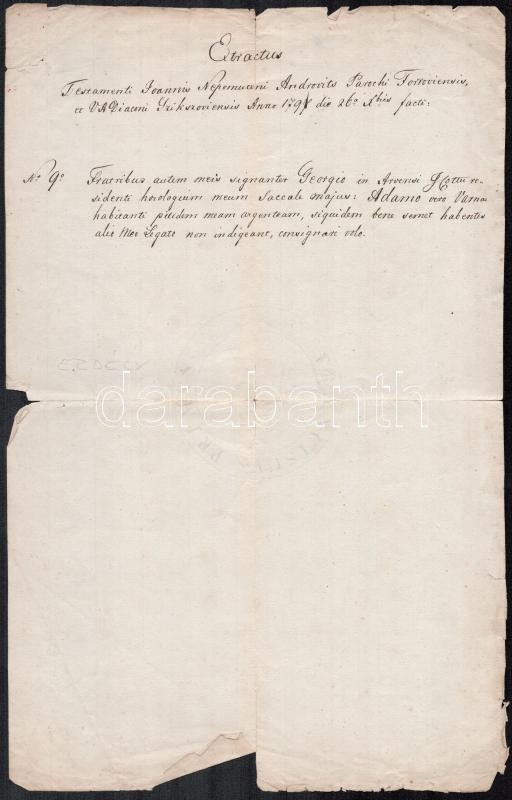 Extractus
Testamenti Joannis Nepomuceni Androvits Parochi Forroviensis,
et VADiaconi Szikszoviensis Anno 179 die 26a Xbris facti:
No 9o Fratribus autem meis signanter Georgio in Arvensi Cottu re-
sidenti horologium meum Saccale majus: Adamo vero Varnae
habitanti pixidem meam argenteam, siquidem bene semet habentes
alio Meo Legato non indigeant, consignari volo.
darabanth